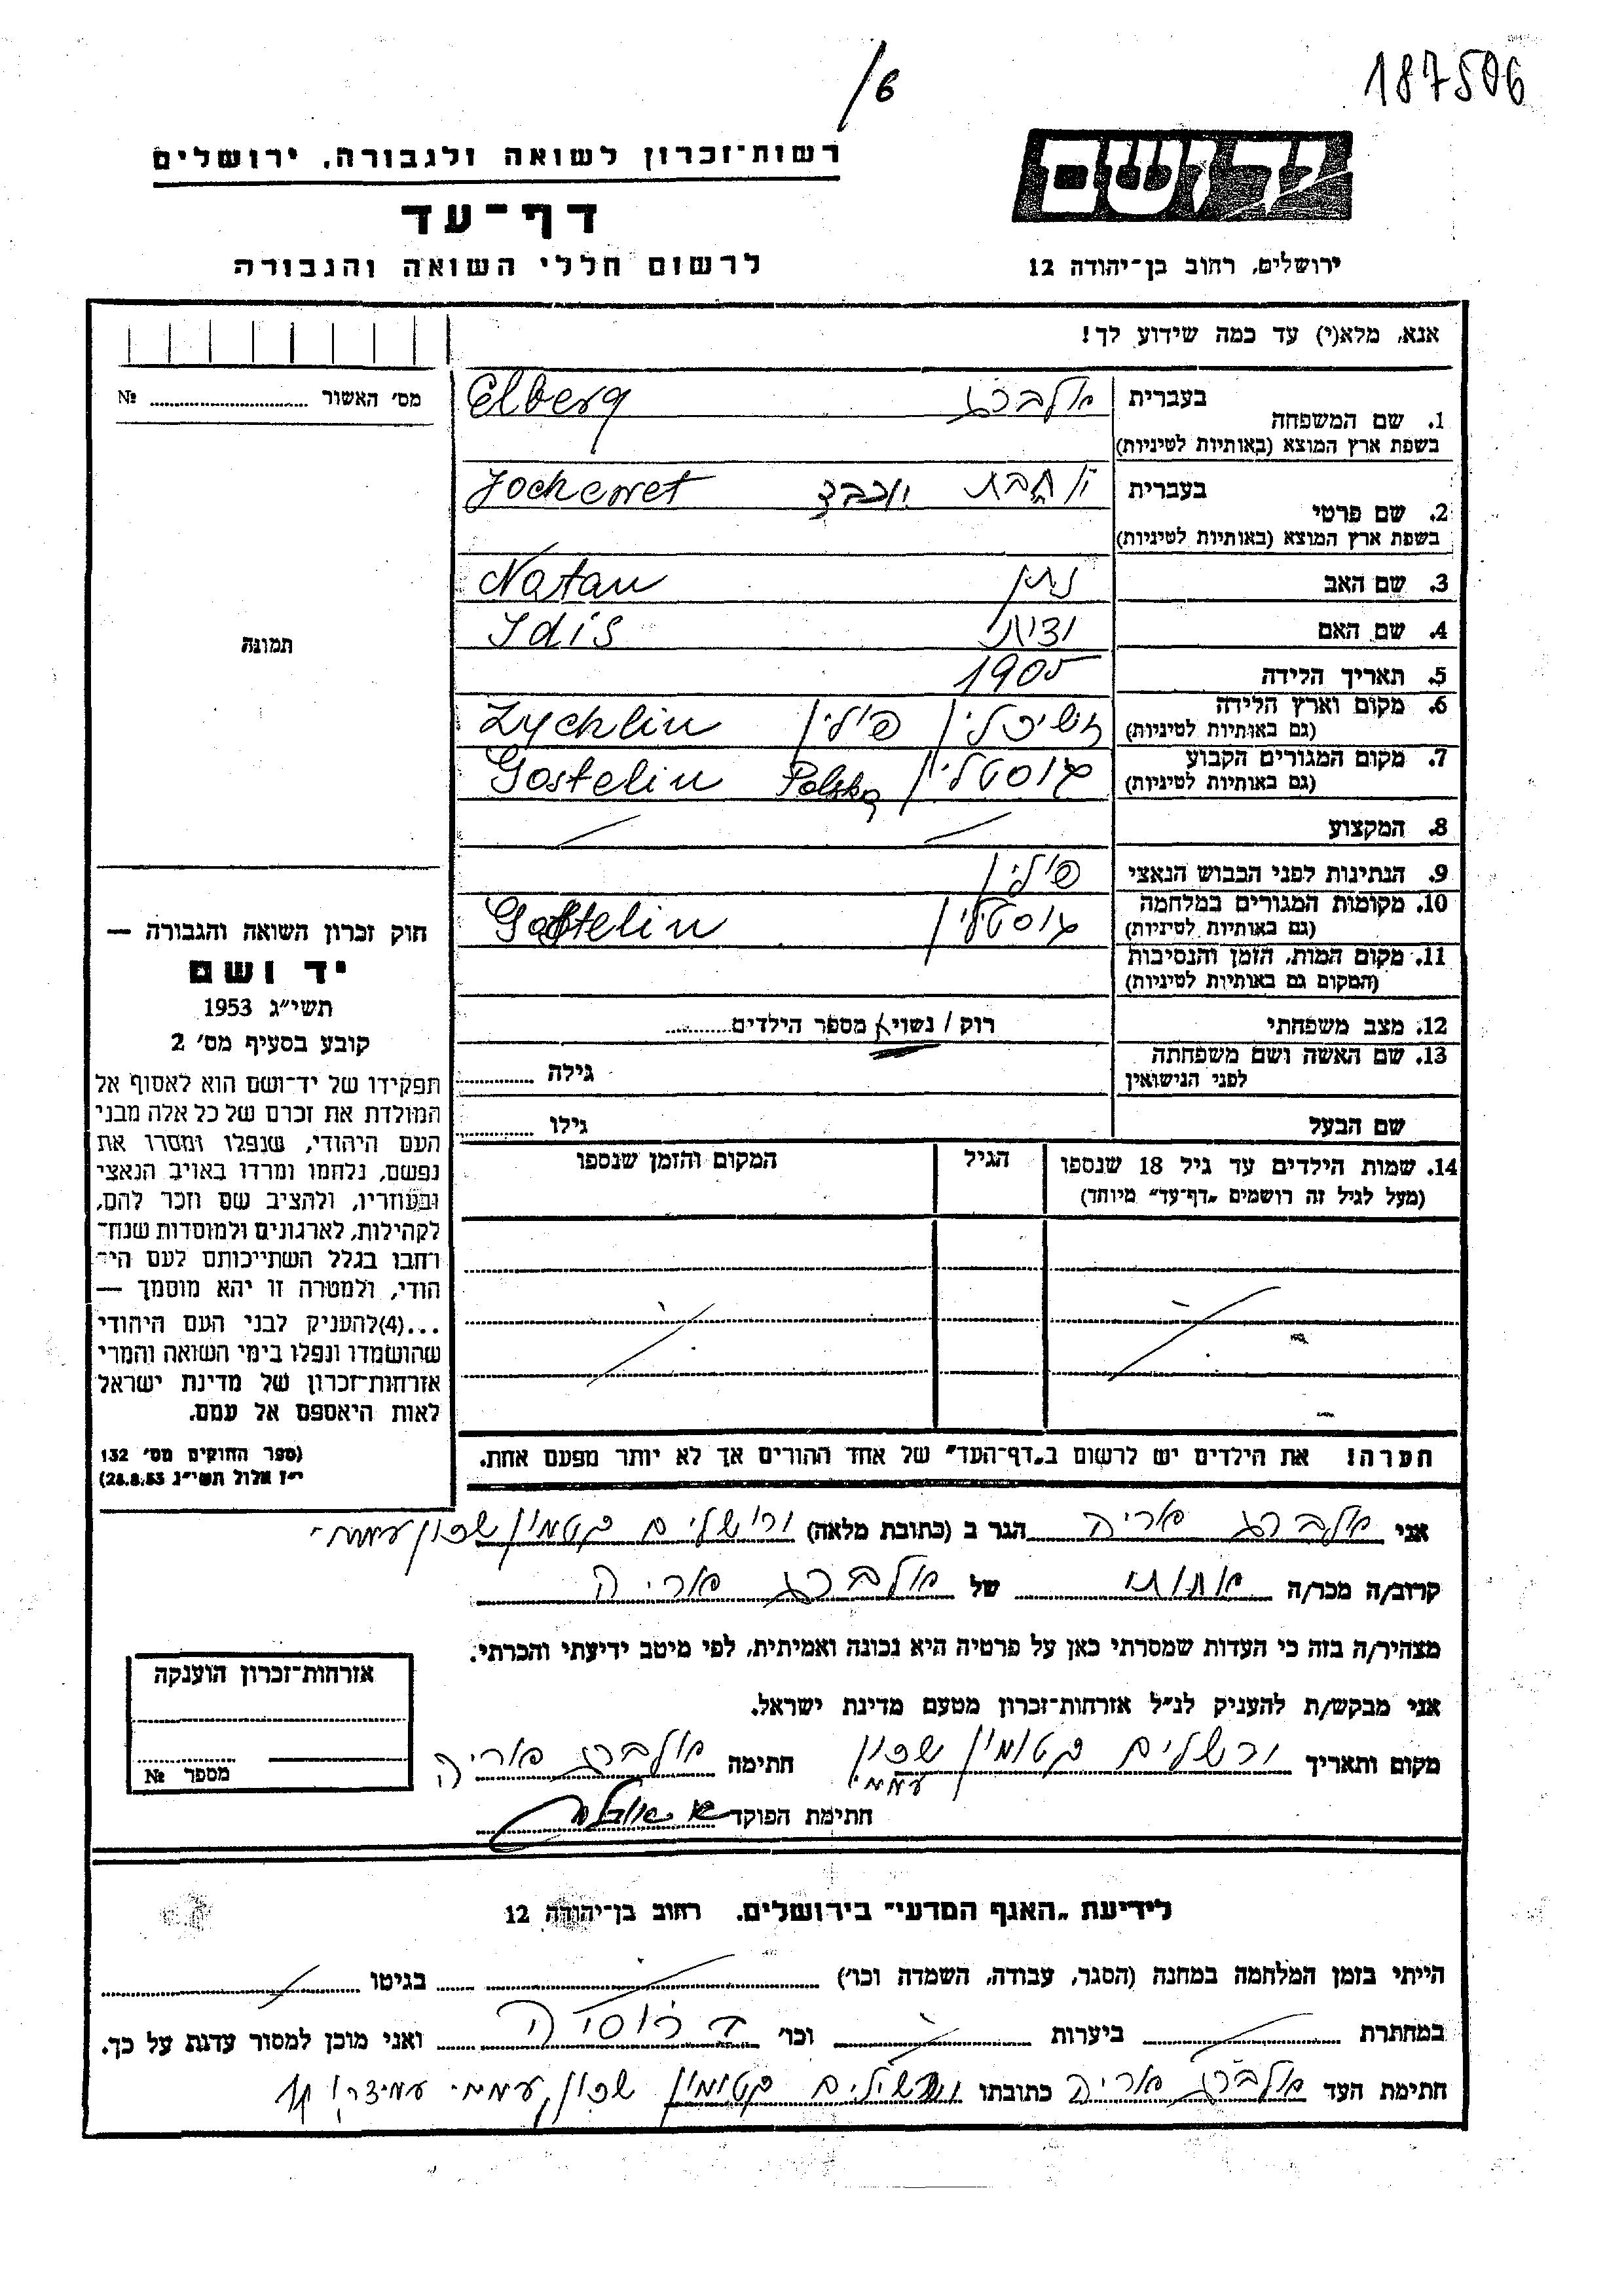 /6
187506
רשות־זכרון לשואה ולגבורה, ירושלים
ידושם
דף־עד
לרשום חללי השואה והגבורה
ירושלים, רחוב בן־יהודה 12
אנא, מלא(י) עד כמה שידוע לך!
מס׳ האשור № ........
1. שם המשפחה
בעברית אלברג Elberg
בשפת ארץ המוצא (באותיות לטיניות)
2. שם פרטי
בעברית יוכבד Jochewet
בשפת ארץ המוצא (באותיות לטיניות)
3. שם האב נתן Natan
4. שם האם Idis
5. תאריך הלידה 1905
6. מקום וארץ הלידה פולין Zychlin
(גם באותיות לטיניות)
7. מקום המגורים הקבוע גוסטלין Polska Gostelin
(גם באותיות לטיניות)
8. המקצוע
9. הנתינות לפני הכבוש הנאצי פולין
10. מקומות המגורים במלחמה גוסטלין Gostelin
(גם באותיות לטיניות)
11. מקום המות, הזמן והנסיבות
(המקום גם באותיות לטיניות)
12. מצב משפחתי רוק / נשוי מספר הילדים........
13. שם האשה ושם משפחתה
לפני הנישואין גילה ........
שם הבעל גילו ........
14. שמות הילדים עד גיל 18 שנספו הגיל המקום והזמן שנספו
(מעל לגיל זה רושמים „דף־עד״ מיוחד)
תמונה
חוק זכרון השואה והגבורה —
יד ושם
תשי״ג 1953
קובע בסעיף מס׳ 2
תפקידו של יד־ושם הוא לאסוף אל
המולדת את זכרם של כל אלה מבני
העם היהודי, שנפלו ומסרו את
נפשם, נלחמו ומרדו באויב הנאצי
ובעוזריו, ולהציב שם וזכר להם,
לקהילות, לארגונים ולמוסדות שנח־
רחבו בגלל השתייכותם לעם הי־
הודי, ולמטרה זו יהא מוסמך —
...(4)להעניק לבני העם היהודי
שהושמדו ונפלו בימי השואה והמרי
אזרחות־זכרון של מדינת ישראל
לאות היאספם אל עמם.
(ספר החוקים מס׳ 132
י״ז אלול תשי״ג 28.8.53)
הערה! את הילדים יש לרשום ב„דף־העד״ של אחד ההורים אך לא יותר מפעם אחת.
אני אלברג אריה הגר ב (כתובת מלאה) ירושלים קטמון שכון עממי
קרוב/ה מכר/ה אחותי של אלברג אריה
מצהיר/ה בזה כי העדות שמסרתי כאן על פרטיה היא נכונה ואמיתית, לפי מיטב ידיעתי והכרתי.
אני מבקש/ת להעניק לנ״ל אזרחות־זכרון מטעם מדינת ישראל.
מקום ותאריך ירשלים קטומון שכון עממי חתימה אלברג אריה
חתימת הפוקד
אזרחות־זכרון הוענקה
מספר №
לידיעת „האגף המדעי״ בירושלים, רחוב בן־יהודה 12
הייתי בזמן המלחמה במחנה (הסגר, עבודה, השמדה וכו׳) ........ בגיטו ........
במחתרת ........ ביערות ........ וכו׳ ברוסיה ואני מוכן למסור עדות על כך.
חתימת העד אלברג אריה כתובתו ירשלים קטומון שכון עממי עמידר